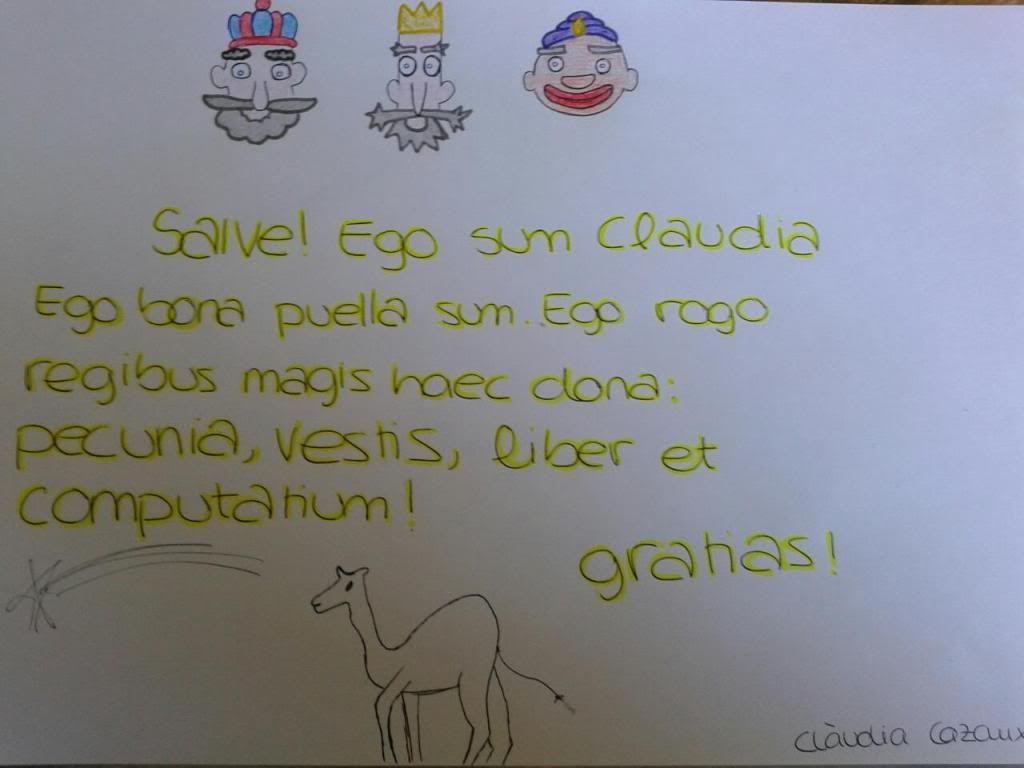 Salve! Ego sum Claudia
Ego bona puella sum. Ego rogo
regibus magis haec dona:
pecunia, vestis, liber et
computatium!
gratias!
Clàudia Cazaux